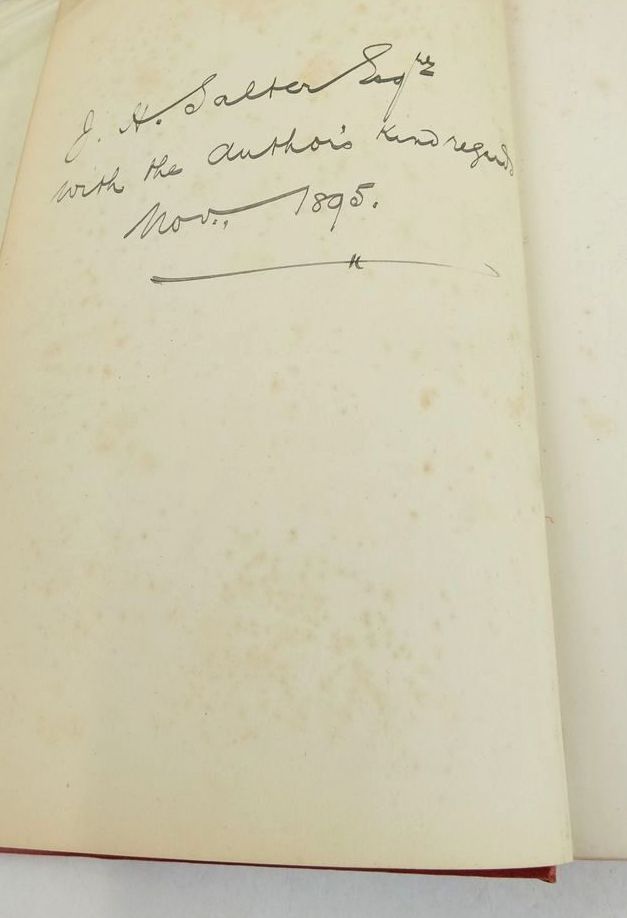 J. H. Salter Esqre
with the author's kind regards
Nov., 1895.